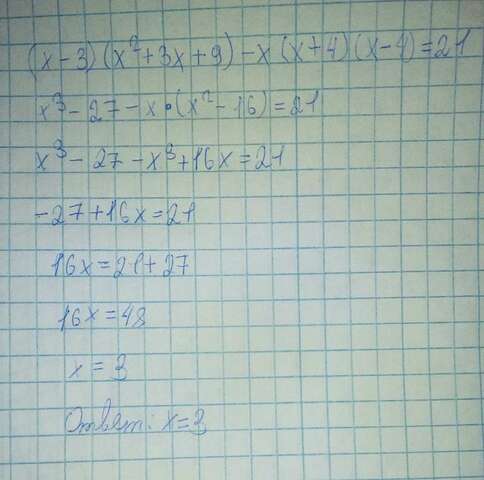 (x-3)(x²+3x+9)-x(x+4)(x-4)=21
x³-27-x•(x²-16)=21
x³-27-x³+16x=21
-27+16x=21
16x=21+27
16x=48
x=3
Ответ: x=3